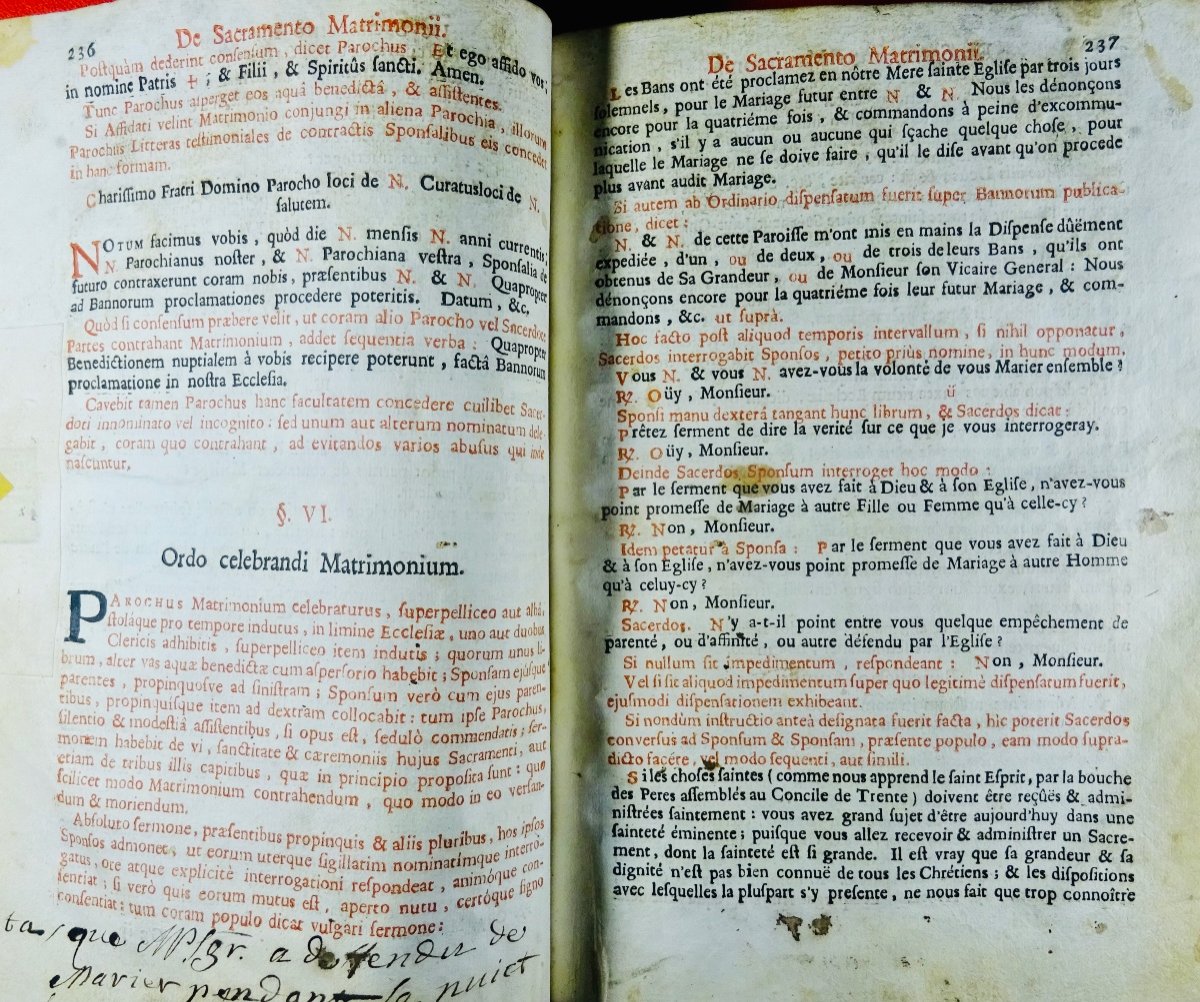 236
De Sacramento Matrimonii.
Postquàm dederint consensum, dicet Parochus: Et ego affido vos;
in nomine Patris ✝; & Filii, & Spiritûs sancti. Amen.
Tunc Parochus asperget eos aquâ benedictâ, & assistentes.
Si Affidati velint Matrimonio conjungi in aliena Parochia, illorum
Parochus Litteras testimoniales de contractis Sponsalibus eis concedet
in hanc formam.
Charissimo Fratri Domino Parocho loci de N. Curatusloci de N.
salutem.
NOTUM facimus vobis, quòd die N. mensis N. anni currentis;
N Parochianus noster, & N. Parochiana vestra, Sponsalia de
futuro contraxerunt coram nobis, præsentibus N. & N. Quapropter
ad Bannorum proclamationes procedere poteritis. Datum, &c.
Quòd si consensum præbere velit, ut coram alio Parocho vel Sacerdote
Partes contrahant Matrimonium, addet sequentia verba: Quapropter
Benedictionem nuptialem à vobis recipere poterunt, factâ Bannorum
proclamatione in nostra Ecclesia.
Cavebit tamen Parochus hanc facultatem concedere cuilibet Sacer-
doti innominato vel incognito: sed unum aut alterum nominatum dele-
gabit, coram quo contrahant, ad evitandos varios abusus qui inde
nascuntur,
§. VI.
Ordo celebrandi Matrimonium.
PAROCHUS Matrimonium celebraturus, superpelliceo aut albâ,
stolâque pro tempore indutus, in limine Ecclesiæ, uno aut duobus
Clericis adhibitis, superpelliceo item indutis; quorum unus li-
brum, alter vas aquæ benedictæ cum aspersorio habebit; Sponsam ejusque
parentes, propinquosve ad sinistram; Sponsum verò cum ejus paren-
tibus, propinquisque item ad dextram collocabit: tum ipse Parochus,
silentio & modestiâ assistentibus, si opus est, sedulò commendatis; ser-
monem habebit de vi, sanctitate & cæremoniis hujus Sacramenti; aut
etiam de tribus illis capitibus, quæ in principio proposita sunt: quo
scilicet modo Matrimonium contrahendum, quo modo in eo versan-
dum & moriendum.
Absoluto sermone, præsentibus propinquis & aliis pluribus, hos ipsos
Sponsos admonet, ut eorum uterque sigillatim nominatimque interro-
gatus, ore atque explicitè interrogationi respondeat, animóque con-
sentiat; si verò quis eorum mutus est, aperto nutu, certóque signo
consentiat: tum coram populo dicat vulgari sermone:
que Msgr. a deffendu de
Marier pendant la nuict
237
De Sacramento Matrimonii.
Les Bans ont été proclamez en nôtre Mere sainte Eglise par trois jours
solemnels, pour le Mariage futur entre N & N. Nous les dénonçons
encore pour la quatriéme fois, & commandons à peine d'excommu-
nication, s'il y a aucun ou aucune qui sçache quelque chose, pour
laquelle le Mariage ne se doive faire, qu'il le dise avant qu'on procede
plus avant audit Mariage.
Si autem ab Ordinario dispensatum fuerit super Bannorum publica-
tione, dicet:
N. & N. de cette Paroisse m'ont mis en mains la Dispense dûëment
expediée, d'un, ou de deux, ou de trois de leurs Bans, qu'ils ont
obtenus de Sa Grandeur, ou de Monsieur son Vicaire General: Nous
dénonçons encore pour la quatriéme fois leur futur Mariage, & com-
mandons, &c. ut suprà.
Hoc facto post aliquod temporis intervallum, si nihil opponatur,
Sacerdos interrogabit Sponsos, petito priùs nomine, in hunc modum.
Vous N. & vous N. avez-vous la volonté de vous Marier ensemble?
℟. Oüy, Monsieur.
Sponsi manu dexterâ tangant hunc librum, & Sacerdos dicat:
Prêtez serment de dire la verité sur ce que je vous interrogeray.
℟. Oüy, Monsieur.
Deinde Sacerdos Sponsum interroget hoc modo:
Par le serment que vous avez fait à Dieu & à son Eglise, n'avez-vous
point promesse de Mariage à autre Fille ou Femme qu'à celle-cy?
℟. Non, Monsieur.
Idem petatur à Sponsa: Par le serment que vous avez fait à Dieu
& à son Eglise, n'avez-vous point promesse de Mariage à autre Homme
qu'à celuy-cy?
℟. Non, Monsieur.
Sacerdos. N'y a-t-il point entre vous quelque empêchement de
parenté, ou d'affinité, ou autre défendu par l'Eglise?
Si nullum sit impedimentum, respondeant: Non, Monsieur.
Vel si sit aliquod impedimentum super quo legitimè dispensatum fuerit,
ejusmodi dispensationem exhibeant.
Si nondùm instructio anteà designata fuerit facta, hîc poterit Sacerdos
conversus ad Sponsum & Sponsam, præsente populo, eam modo supra-
dicto facere, vel modo sequenti, aut simili.
Si les choses saintes (comme nous apprend le saint Esprit, par la bouche
des Peres assemblés au Concile de Trente) doivent être reçûës & admi-
nistrées saintement: vous avez grand sujet d'être aujourd'huy dans une
sainteté éminente; puisque vous allez recevoir & administrer un Sacre-
ment, dont la sainteté est si grande. Il est vray que sa grandeur & sa
dignité n'est pas bien connuë de tous les Chrétiens; & les dispositions
avec lesquelles la pluspart s'y presente, ne nous fait que trop connoître